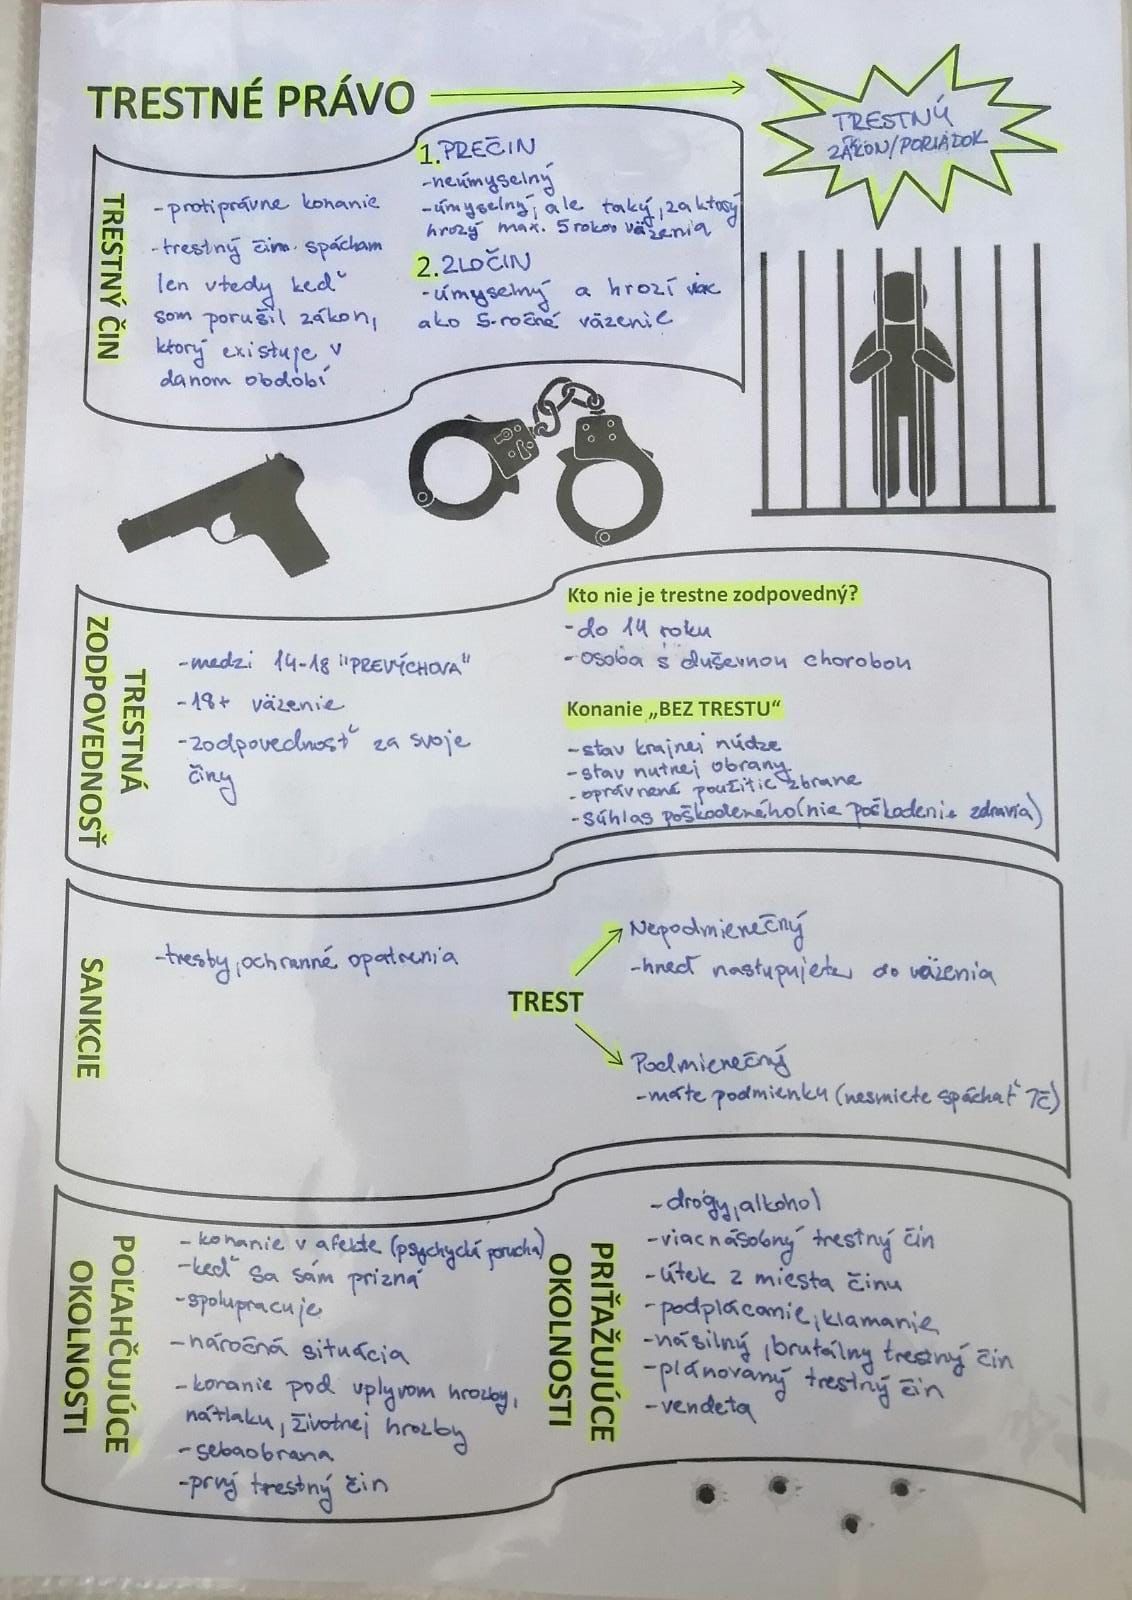 TRESTNÉ PRÁVO
TRESTNÝ
ZÁKON/PORIADOK
TRESTNÝ ČIN
-protiprávne konanie
-trestný čin. spácham
len vtedy keď
som porušil zákon,
ktorý existuje v
danom období
1.PREČIN
-neúmyselný
-úmyselný, ale taký, za ktorý
hrozý max. 5 rokov väzenia
2.ZLOČIN
-úmyselný a hrozí viac
ako 5-ročné väzenie
TRESTNÁ
ZODPOVEDNOSŤ
-medzi 14-18 "PREVÝCHOVA"
-18+ väzenie
-zodpovednosť za svoje
činy
Kto nie je trestne zodpovedný?
-do 14 roku
-osoba s duševnou chorobou
Konanie „BEZ TRESTU“
-stav krajnej núdze
-stav nutnej obrany
-oprávnené použitie zbrane
-súhlas poškodeného(nie poškodenie zdravia)
SANKCIE
-tresty, ochranné opatrenia
TREST
Nepodmienečný
-hneď nastupujete do väzenia
Podmienečný
-máte podmienku (nesmiete spáchať TČ)
POĽAHČUJÚCE
OKOLNOSTI
-konanie v afekte (psychycká porucha)
-keď sa sám prizná
-spolupracuje
-náročná situácia
-konanie pod vplyvom hrozby,
nátlaku, životnej hrozby
-sebaobrana
-prvý trestný čin
PRIŤAŽUJÚCE
OKOLNOSTI
-drogy, alkohol
-viacnásobný trestný čin
-útek z miesta činu
-podplácanie, klamanie
-násilný, brutálny trestný čin
-plánovaný trestný čin
-vendeta